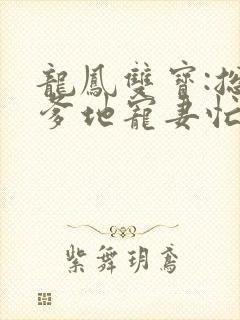 龍鳳雙寶:總
爹地寵妻忙
紫舞玥鳶